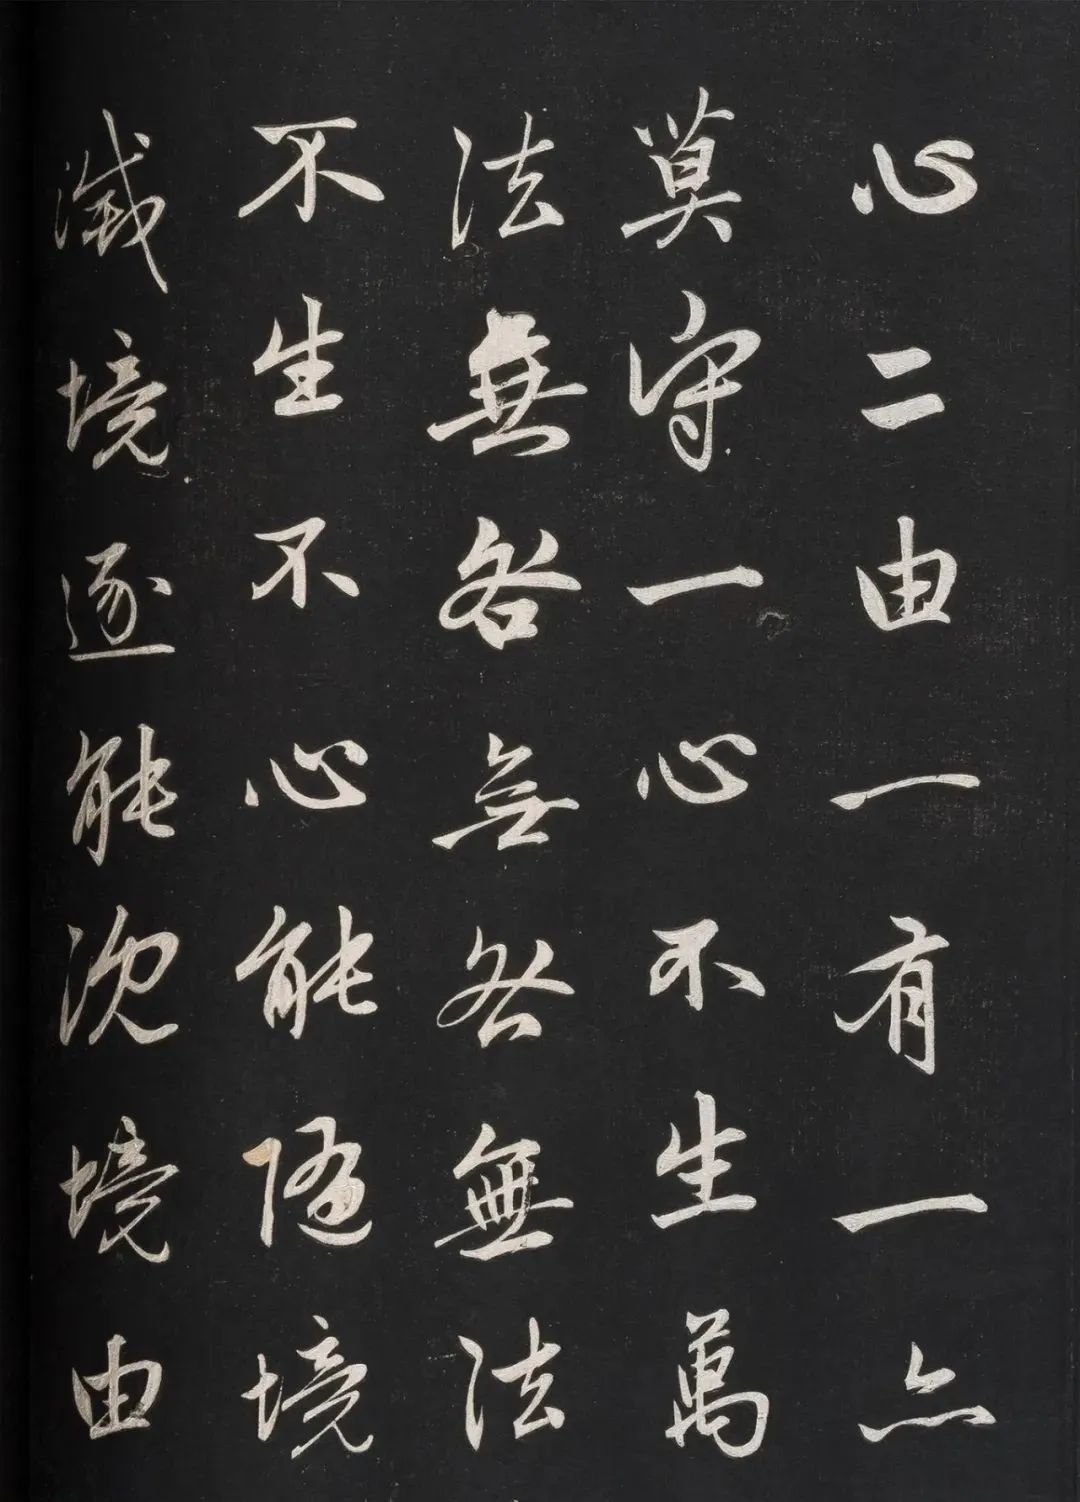 心二由一有一亦
莫守一心不生萬
法無咎無咎無法
不生不心能随境
滅境逐能沉境由